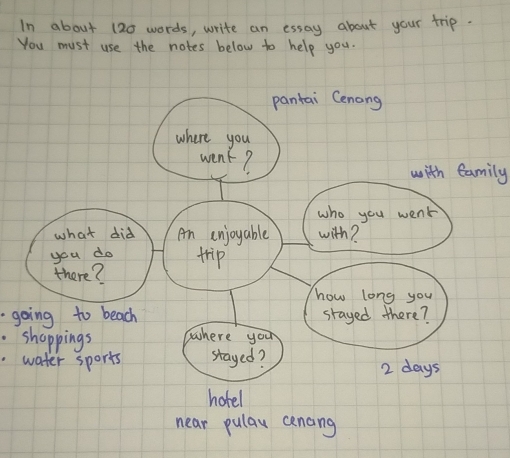 In about 120 words, write an essay about your trip.
You must use the notes below to help you.
pantai Cenang
where you
went?
with family
who you went
with?
what did
you do
there?
An enjoyable
trip
how long you
stayed there?
• going to beach
• shoppings
• water sports
where you
stayed?
2 days
hotel
near pulau cenang